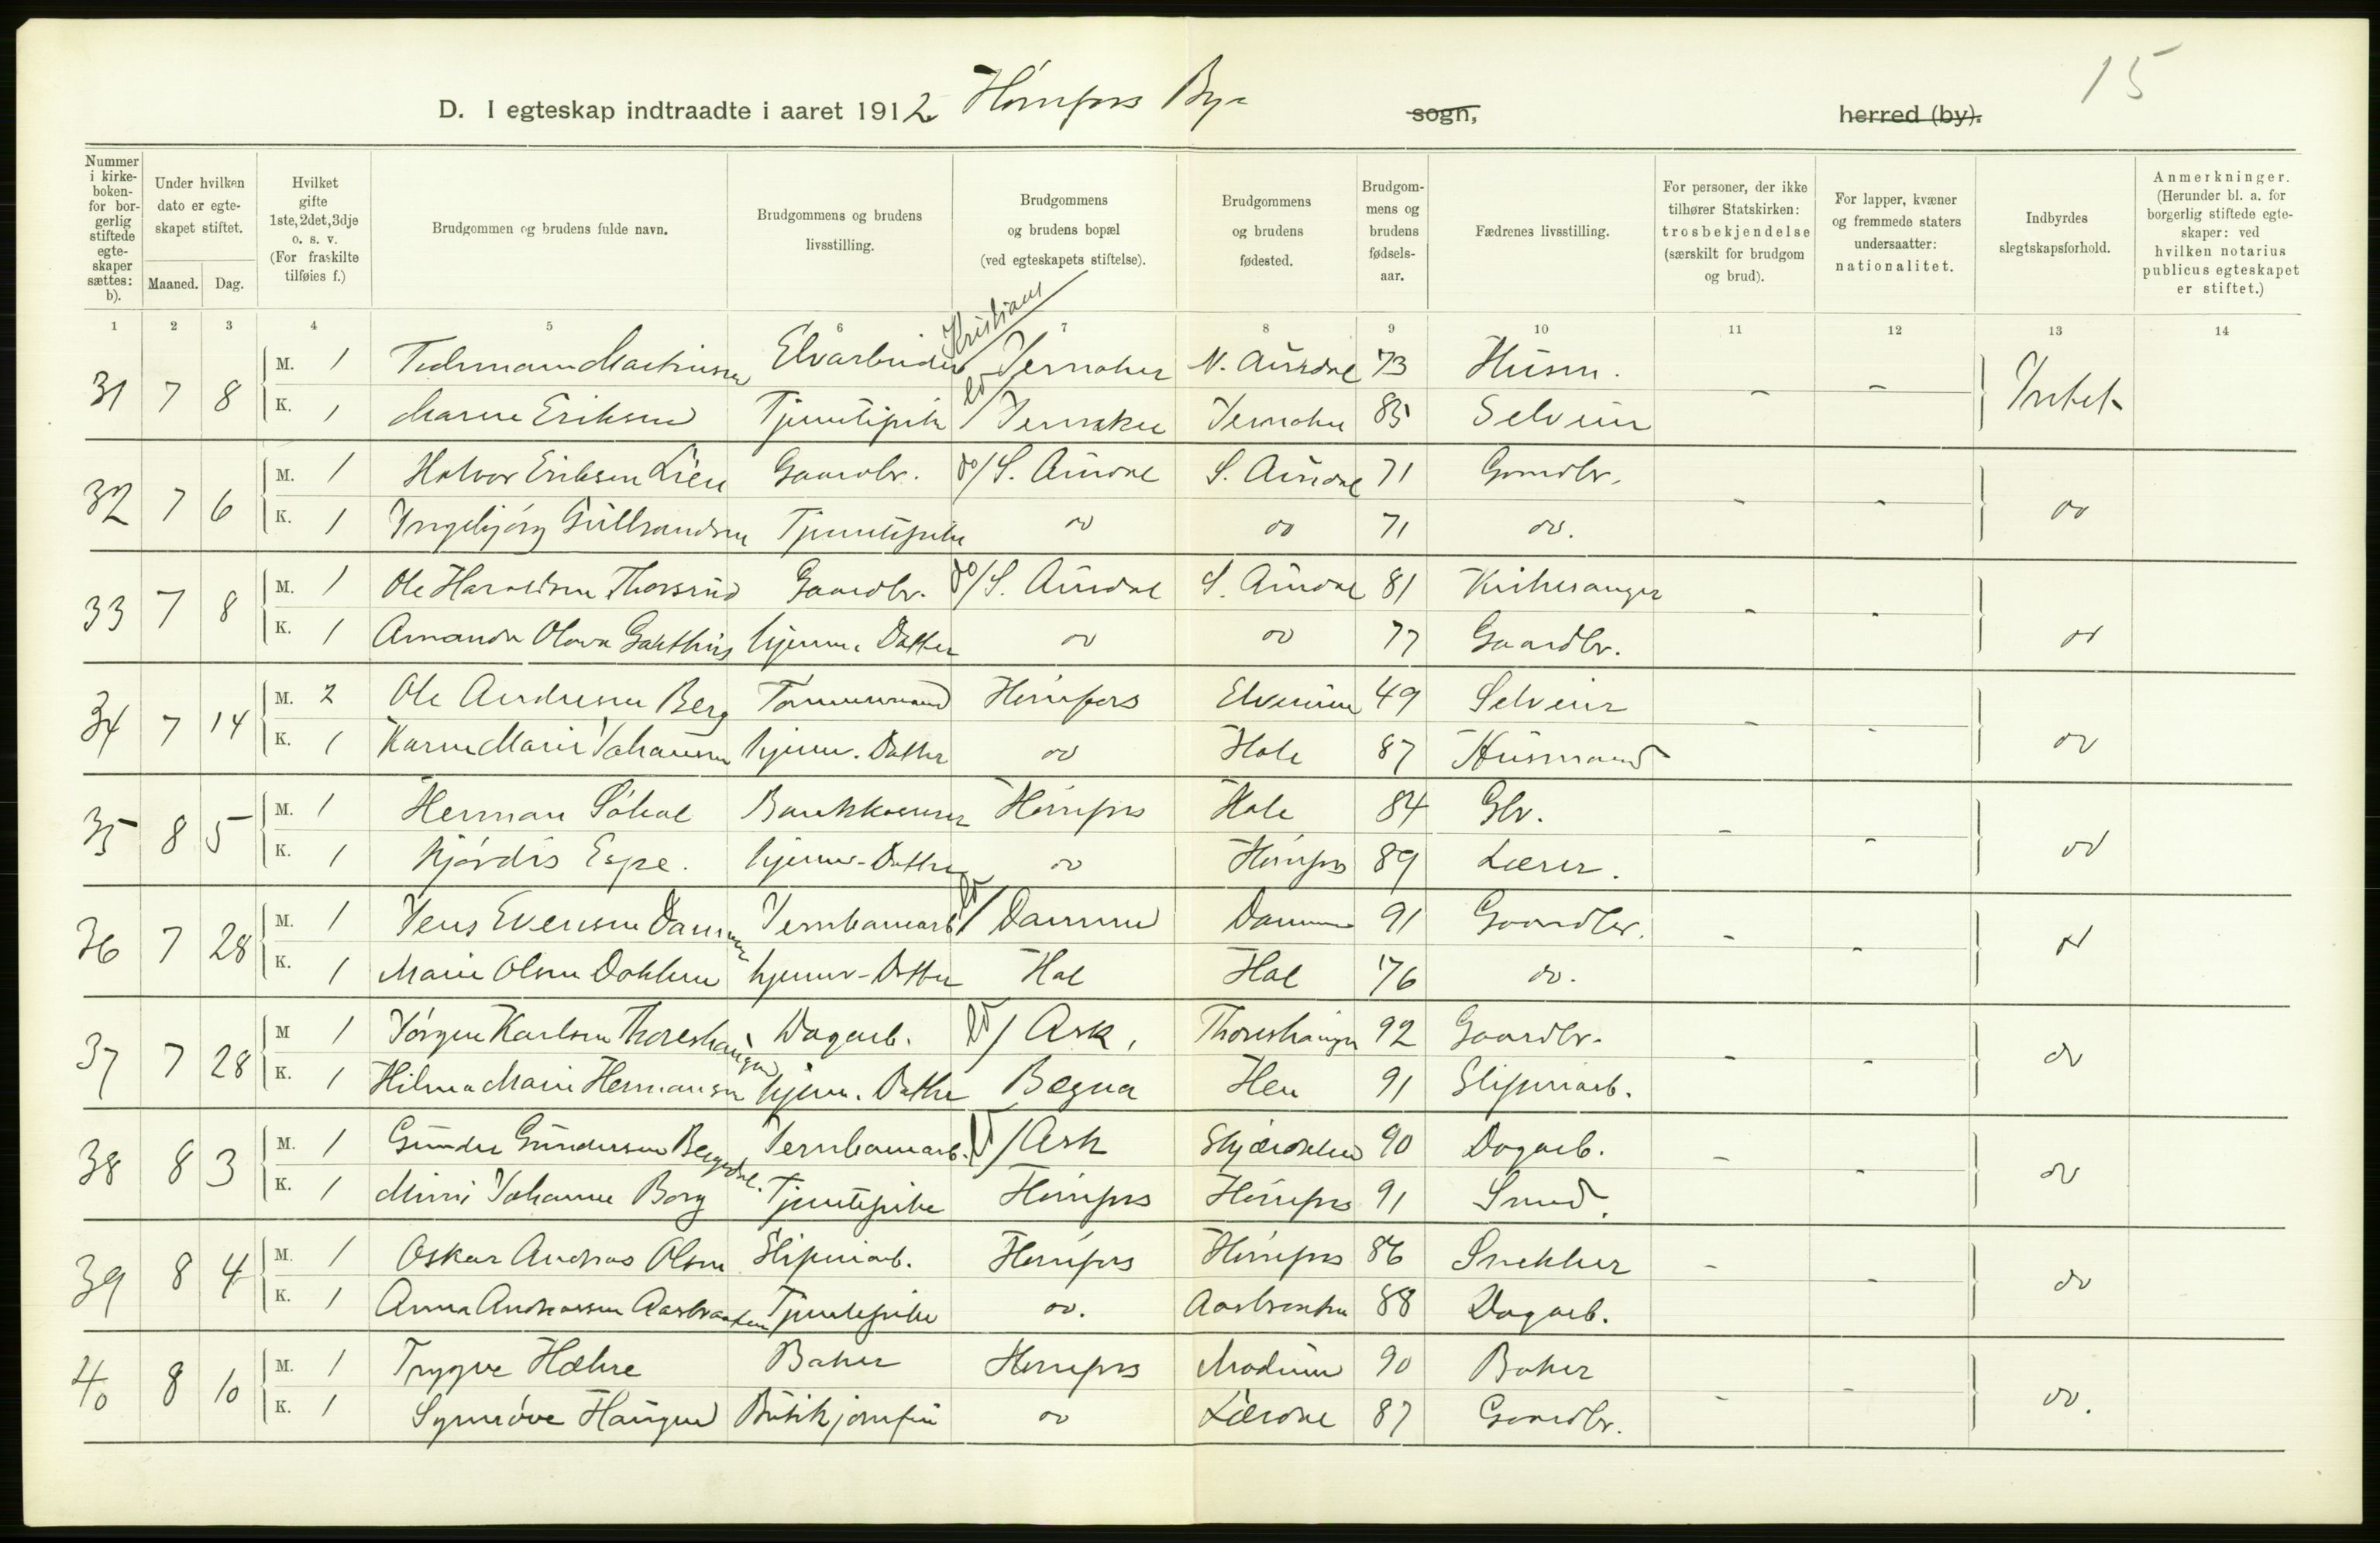 15
D. I egteskap indtraadte i aaret 1912 Hønefoss By. sogn, herred (by).
Nummer i kirkeboken- for borgerlig stiftede egteskaper sættes: b).
Under hvilken dato er egteskapet stiftet.
Maaned. Dag.
Hvilket gifte 1ste, 2det, 3dje o. s. v. (For fraskilte tilføies f.)
Brudgommen og brudens fulde navn.
Brudgommens og brudens livsstilling.
Brudgommens og brudens bopæl (ved egteskapets stiftelse).
Brudgommens og brudens fødested.
Brudgommens og brudens fødselsaar.
Fædrenes livsstilling.
For personer, der ikke tilhører Statskirken: trosbekjendelse (særskilt for brudgom og brud).
For lapper, kvæner og fremmede staters undersaatter: nationalitet.
Indbyrdes slegtskapsforhold.
Anmerkninger. (Herunder bl. a. for borgerlig stiftede egteskaper: ved hvilken notarius publicus egteskapet er stiftet.)
1 2 3 4 5 6 7 8 9 10 11 12 13 14
31 7 8 M. 1 Martinsen Kristians / Jevnaker N. Aurdal 73 Husm. - - Intet
K. 1 Maren Eriksen Tjenestepike do / Jevnaker Jevnaker 85 Selveier
32 7 6 M. 1 Halvor Eriksen Lien Gaardbr. do / S. Aurdal S. Aurdal 71 Gaardbr. - - do
K. 1 Ingebjørg Gulbrandsen Tjenestepike do do 71 do.
33 7 8 M. 1 Ole Haraldsen Thorsrud Gaardbr. do / S. Aurdal S. Aurdal 81 Kirkesanger - - do
K. 1 Amanda Olava Garthus hjemv. Datter do do 77 Gaardbr.
34 7 14 M. 2 Ole Andersen Berg Tømmermand Hønefoss Elverum 49 Selveier - - do
K. 1 Karen Marie Johansen hjemv. Datter do Hole 87 Husmand
35 8 5 M. 1 Herman Søhol Bankkasserer Hønefoss Hole 84 Gbr. - - do
K. 1 Hjørdis Espe. hjemv. Datter do Hønefoss 89 Lærer.
36 7 28 M. 1 Jens Evensen Dammen Jernbanearb. do / Dammen Dammen 91 Gaardbr. - - do
K. 1 Marie Olsen Dokken hjemv. Datter Hal Hal 76 do.
37 7 28 M 1 Jørgen Karlsen Thoreshaugen Dagarb. do / Ask, Thoreshaugen 92 Gaardbr. - - do
K. 1 Hilma Marie Hermansen hjemv. Datter Bægna Hen 91 Sliperiarb.
38 8 3 M. 1 Gunder Gundersen Bergedal. Jernbanearb. do / Ask Skjærdalen 90 Dagarb. - - do
K. 1 Mimi Johanne Borg Tjenestepike Hønefoss Hønefoss 91 Smed.
39 8 4 M. 1 Oskar Andreas Olsen Sliperiarb. Hønefoss Hønefoss 86 Snekker - - do
K. 1 Anna Andreassen Aasbraaten Tjenestepike do. Aasbraaten 88 Dagarb.
40 8 10 M. 1 Trygve Hæhre Baker Hønefoss Modum 90 Baker - - do.
K. 1 Synnøve Haugen Butikjomfru do Lærdal 87 Gaardbr.